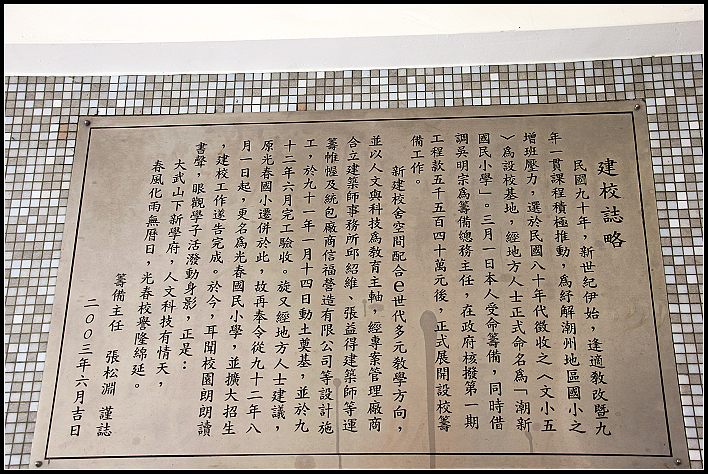 建校誌略
民國九十年，新世紀伊始，逢適教改暨九
年一貫課程積極推動，為紓解潮州地區國小之
增班壓力，選於民國八十年代徵收之〈文小五
〉為設校基地，經地方人士正式命名為「潮新
國民小學」。三月一日本人受命籌備，同時借
調吳明宗為籌備總務主任，在政府核撥第一期
工程款五千五百四十萬元後，正式展開設校籌
備工作。
新建校舍空間配合e世代多元教學方向，
並以人文與科技為教育主軸，經專案管理廠商
合立建築師事務所邱紹維、張益得建築師等運
籌帷幄及統包廠商信福營造有限公司等設計施
工，於九十一年一月十四日動土奠基，並於九
十二年六月完工驗收。旋又經地方人士建議，
原光春國小遷併於此，故再奉令從九十二年八
月一日起，更名為光春國民小學，並擴大招生
，建校工作遂告完成。於今，耳聞校園朗朗讀
書聲，眼觀學子活潑動身影，正是：
大武山下新學府，人文科技有情天，
春風化雨無曆日，光春校譽隆綿延。
籌備主任 張松淵 謹誌
二００三年六月吉日